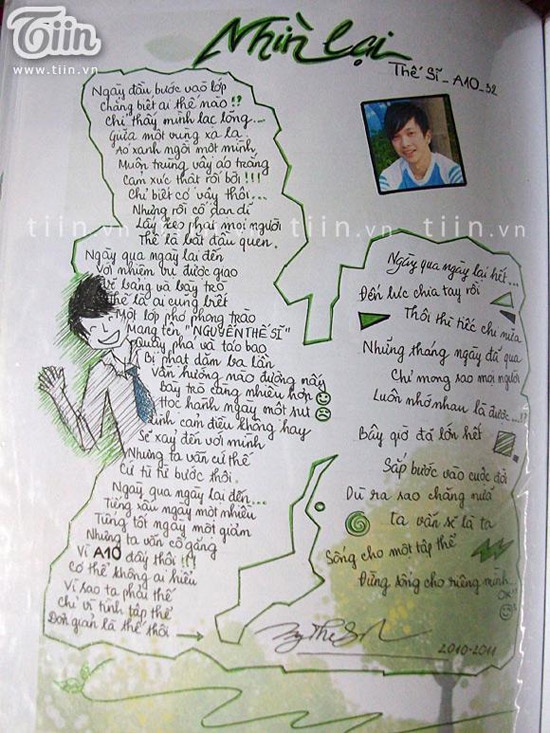 Tiin
www.tiin.vn
Nhìn lại
Thế Sĩ _ A10 _ 52
Ngày đầu bước vào lớp
Chẳng biết ai thế nào !!
Chỉ thấy mình lạc lõng...
Giữa một vùng xa lạ
Áo xanh ngồi một mình
Muôn trùng vây áo trắng
Cảm xúc thật rối bời !!!
Chỉ biết có vậy thôi...
Nhưng rồi cố dạn dĩ
Lấy kẹo phát mọi người
Thế là bắt đầu quen.
Ngày qua ngày lại đến
Với nhiệm vụ được giao
bảng và bày trò
là ai cũng biết
Một lớp phó phong trào
Mang tên "NGUYỄN THẾ SĨ"
Quậy phá và táo bạo
Bị phạt dăm ba lần
Vẫn hướng nào đường nấy
Bày trò càng nhiều hơn
Học hành ngày một sụt
cam điều không hay
Sẽ xảy đến với mình
Nhưng ta vẫn cứ thế
Cứ từ từ bước thôi.
Ngày qua ngày lại đến...
Tiếng xấu ngày một nhiều
Tiếng tốt ngày một giảm
Nhưng ta vẫn cố gắng
Vì A10 đấy thôi !!!
Có thể không ai hiểu
Vì sao ta phải thế
Chỉ vì tình tập thể
Đơn giản là thế thôi
Ngày qua ngày lại hết...
Đến lúc chia tay rồi
Thôi thì tiếc chi nữa
Những tháng ngày đã qua
Chỉ mong sao mọi người
Luôn nhớ nhau là được...!?
Bây giờ đã lớn hết
Sắp bước vào cuộc đời
Dù ra sao chăng nữa
ta vẫn sẽ là ta
Sống cho một tập thể
Đừng sống cho riêng mình...
OK!!
2010-2011
tiin.vn tiin.vn tiin.vn tiin.vn